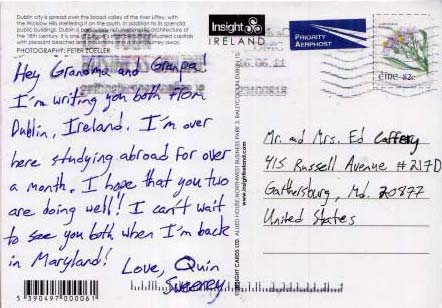 Dublin city is spread over the broad valley of the river Liffey, with
the Wicklow Hills sheltering it on the south. In addition to its splendid
public buildings, Dublin is particularly rich in domestic architecture of
the 18th century. It is one of
with pleasant beaches and
PHOTOGRAPHY: PETER ZOELLER
Insight
IRELAND
PRIORITY
AERPHOST
06.06.11
ÉIRE 82c
Hey Grandma and Granpa!
I'm writing you both from
Dublin, Ireland. I'm over
here studying abroad for over
a month. I hope that you two
are doing well! I can't wait
to see you both when I'm back
in Maryland!
Love, Quin
Sweeney
5 390497 000061
www.insightireland.com
Mr. and Mrs. Ed Caffery
415 Russell Avenue #217D
Gaithersburg, Md. 20877
United States